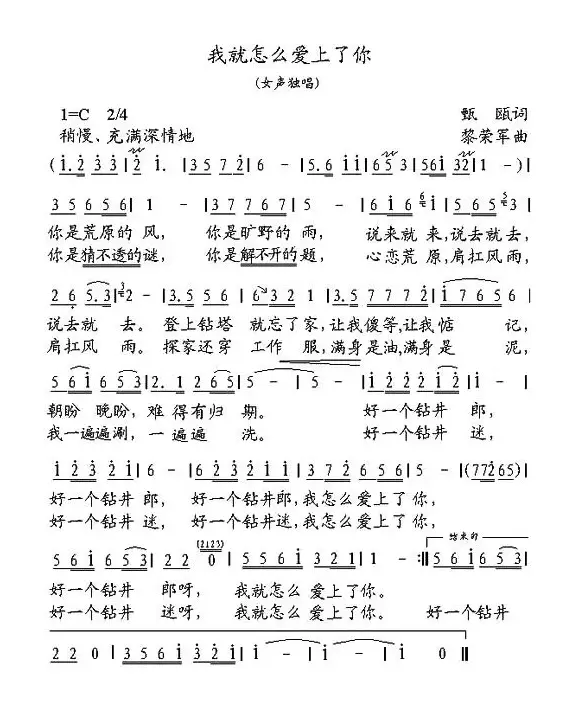 我就怎么爱上了你
(女声独唱)
1=C 2/4 甄 瓯词
稍慢、充满深情地 黎荣军曲
(i.2 3 3 | 2 i. | 3 5 7 2 | 6 - | 5.6 i i | 6 5 3 | 5 6 i 3 2 | 1 -) |
3 5 6 5 6 | 1 - | 3 7 7 6 7 | 5 - | 6 i 6 i | 6 5 3 |
你是荒原的 风, 你是旷野的 雨, 说来就 来,说去就去,
你是猜不透的谜, 你是解不开的题, 心恋荒 原,肩扛风雨,
2 6 5.3 | 2 - | 3.5 5 5 | 6 3 2 1 | 3.5 7 7 7 2 | i 7 6 5 6 |
说去就 去。 登上钻塔 就忘了家,让我傻等,让我惦 记,
肩扛风 雨。 探家还穿 工作 服,满身是油,满身是 泥,
5 6 i 6 5 3 | 2. 1 2 6 5 | 5 - | 5 - | i 2 3 2 i 2 |
朝盼 晚盼, 难 得有归 期。 好一个钻井 郎,
我一遍遍涮, 一 遍遍 洗。 好一个钻井 迷,
i 2 3 2 i | 6 - | 6 2 3 2 i i | 3 7 6 5 6 | 5 - | (7 7 2 6 5) |
好一个钻井 郎, 好一个钻井郎,我怎么爱上了 你,
好一个钻井 迷, 好一个钻井迷,我怎么爱上了 你,
结束句
5 6 i 6 5 3 | 2 2 0 | 5 5 6 i 3 2 1 | 1 - :‖ 5 6 i 6 5 3 |
好一个钻井 郎呀, 我就怎么 爱上了你
好一个钻井 迷呀, 我就怎么 爱上了你。 好一个钻井
2 2 0 | 3 5 6 i 3 2 i | i - | i - | i 0 ‖